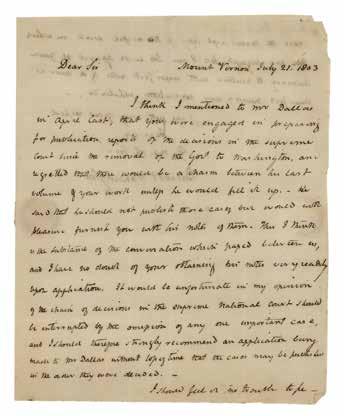 Dear Sir Mount Vernon July 21. 1803
I think I mentioned to Mr Dallas
in April last, that you were engaged in preparing
for publication reports of the decisions in the supreme
court since the removal of the Govt to Washington, and
regretted that there would be a chasm between his last
volume & your work unless he would fill it up. - He
said that he should not publish those cases but would with
pleasure furnish you with his notes of them. This I think
is the substance of the conversation which passed between us,
and I have no doubt of your obtaining his notes very readily
upon application. It would be unfortunate in my opinion
if the chain of decisions in the supreme National court should
be interrupted by the omission of any one important case,
and I should therefore strongly recommend an application being
made to Mr Dallas without loss of time that the cases may be published
in the order they were decided. -
I should feel it no trouble to